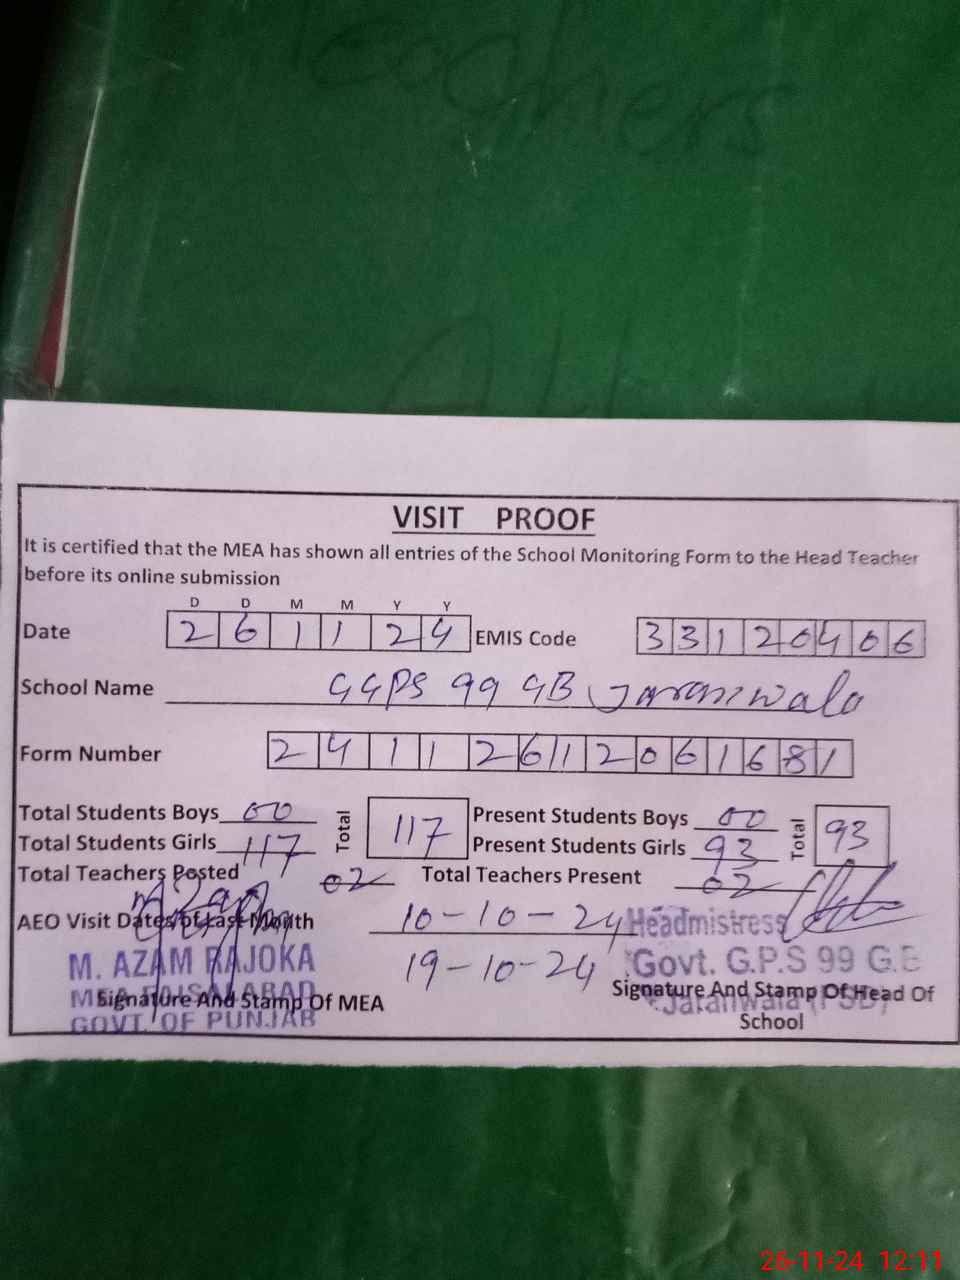 Teachers
VISIT PROOF
It is certified that the MEA has shown all entries of the School Monitoring Form to the Head Teacher
before its online submission
D D M M Y Y
Date 2 6 1 1 2 4 EMIS Code 3 3 1 2 0 4 0 6
School Name GGPS 99 GB Jaranwala
Form Number 2 4 1 1 2 6 1 1 2 0 6 1 6 8 1
Total Students Boys 00 Total 117 Present Students Boys 00 Total 93
Total Students Girls 117 Present Students Girls 93
Total Teachers Posted 02 Total Teachers Present 02
AEO Visit Dates of Last Month 10-10-24 Headmistress
M. AZAM RAJOKA 19-10-24 Govt. G.P.S 99 G.B
MEA FAISALABAD
Signature And Stamp Of MEA Signature And Stamp Of Head Of
School
Jaranwala (FSD)
GOVT. OF PUNJAB
26-11-24 12:11